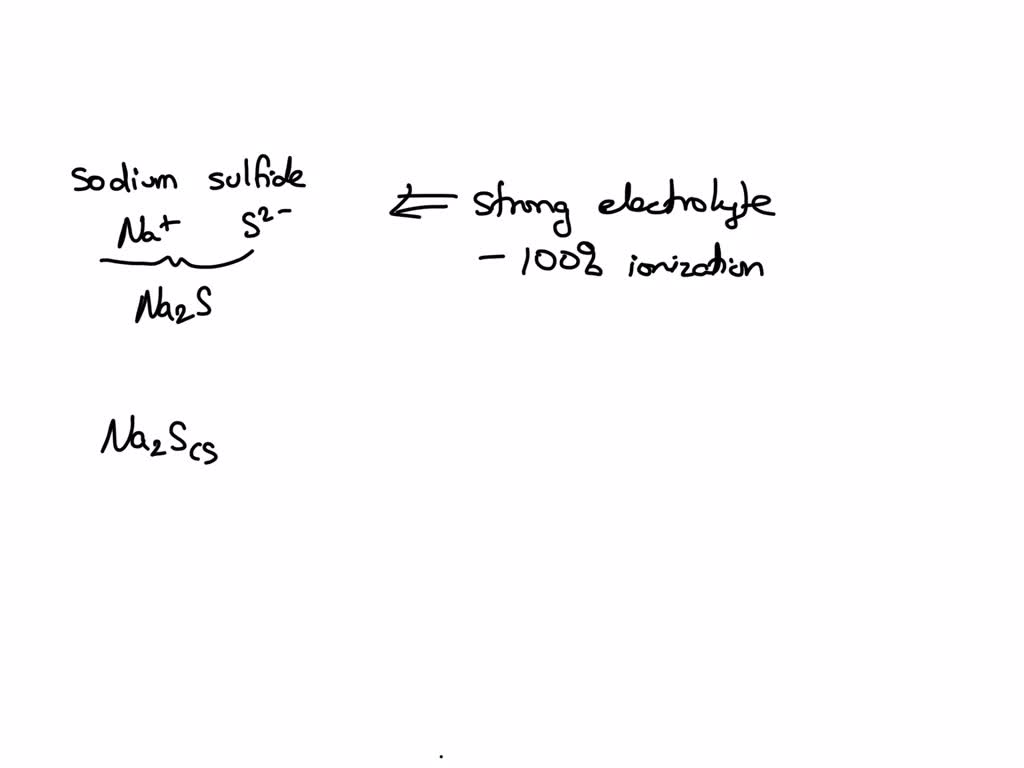 sodium sulfide
Na+ S2-
Na2S
⇐ strong electrolyte
- 100% ionization
Na2S(s